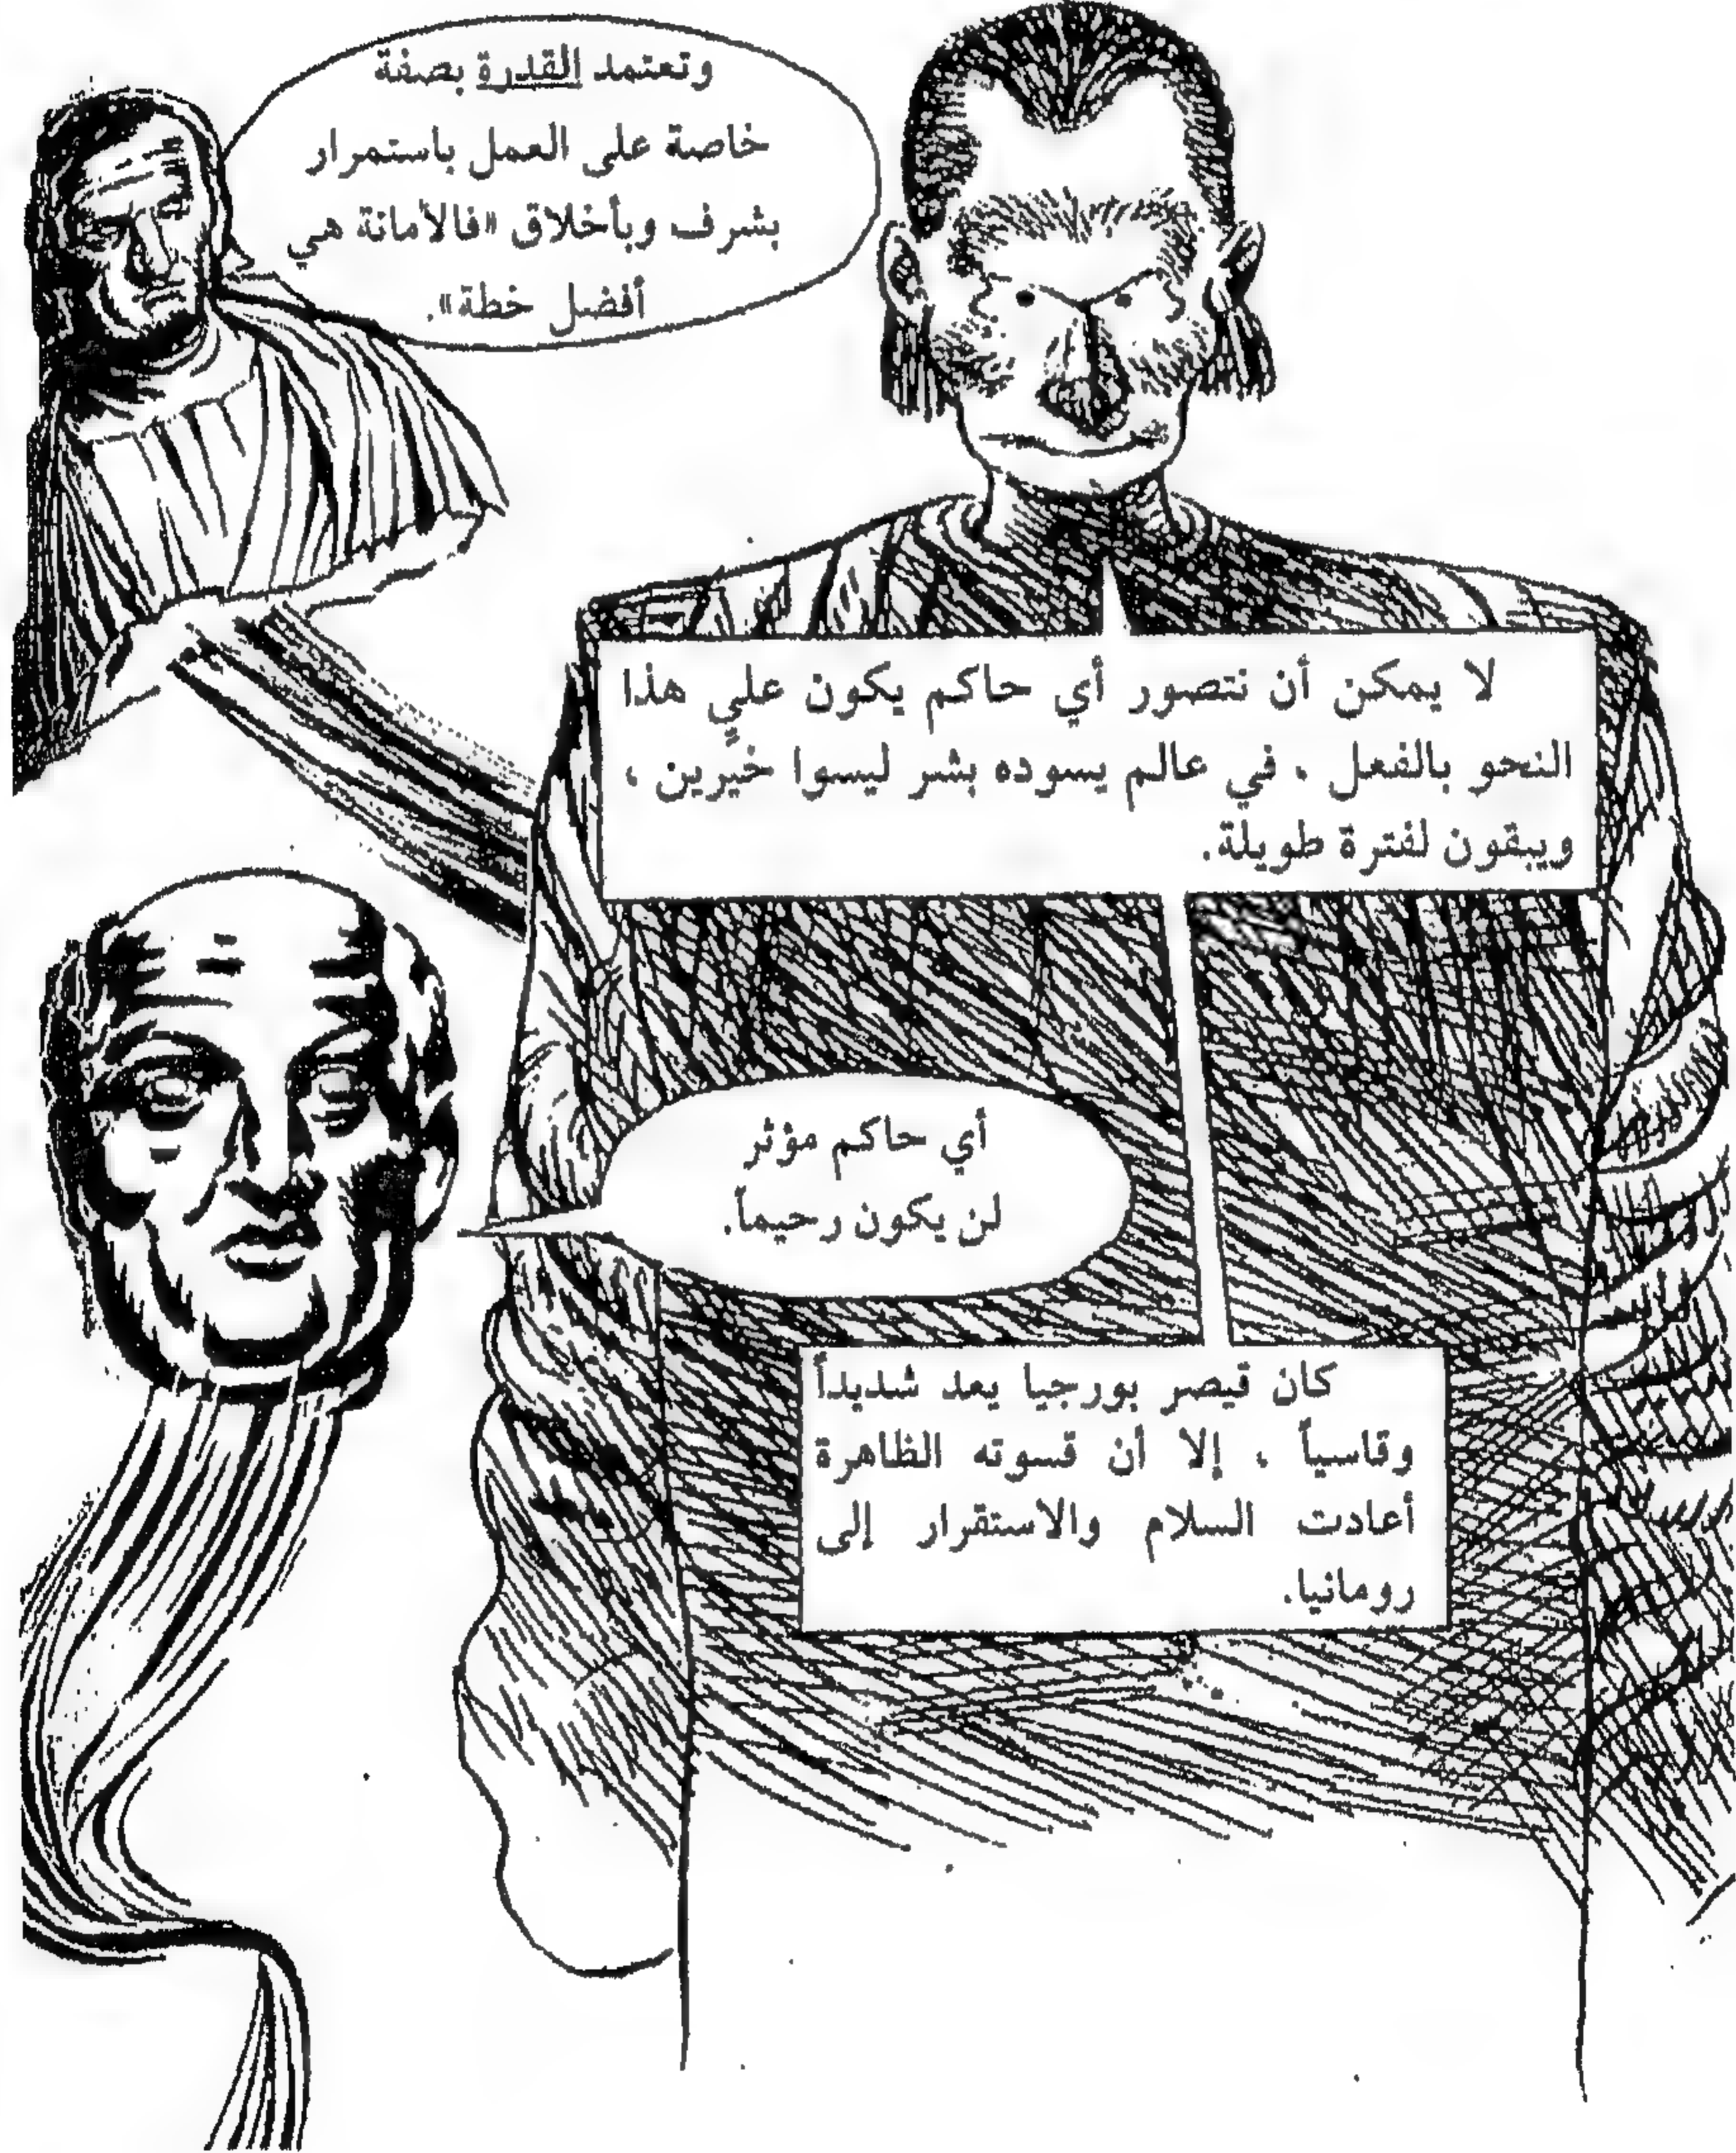 وتعتمد القدرة بصفة
خاصة على العمل باستمرار
بشرف وبأخلاق «فالأمانة هي
أفضل خطة».
لا يمكن أن نتصور أي حاكم يكون علي هذا
النحو بالفعل ، في عالم يسوده بشر ليسوا خيِّرين ،
ويبقون لفترة طويلة.
أي حاكم مؤثر
لن يكون رحيماً.
كان قيصر بورجيا يعد شديداً
وقاسياً ، إلا أن قسوته الظاهرة
أعادت السلام والاستقرار إلى
رومانيا.